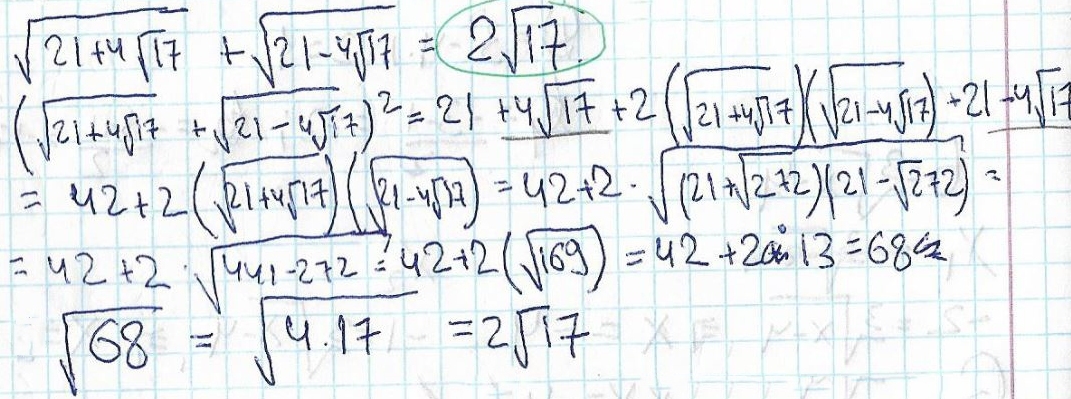 √(21+4√17) + √(21-4√17) = 2√17.
(√(21+4√17) + √(21-4√17))² = 21 + 4√17 + 2(√(21+4√17))(√(21-4√17)) + 21 - 4√17
= 42+2(√(21+4√17))(√(21-4√17)) = 42+2 · √((21+√272)(21-√272)) =
= 42 + 2 · √(441-272) = 42+2(√169) = 42 + 2 13 = 68
√68 = √(4.17) = 2√17